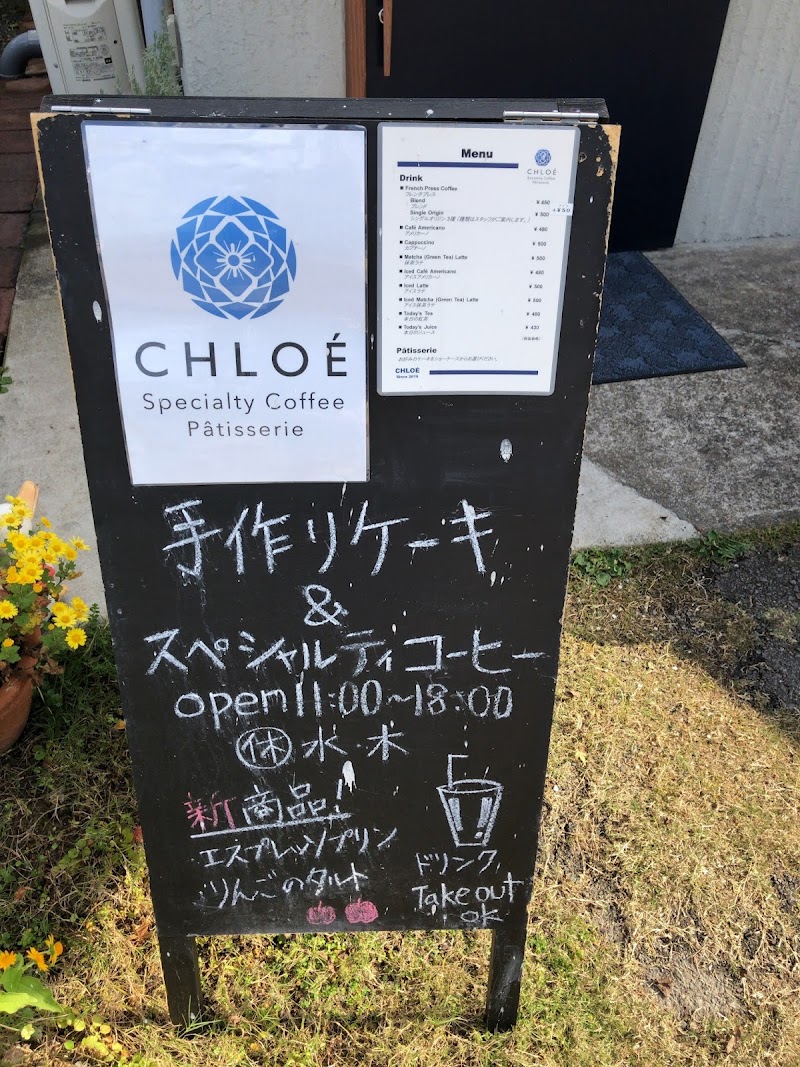 CHLOÉ
Specialty Coffee
Pâtisserie
Menu
CHLOÉ
Specialty Coffee
Pâtisserie
Drink
■ French Press Coffee
フレンチプレス
Blend ¥ 450
ブレンド
Single Origin ¥ 500 +¥50
シングルオリジン 3種「種類はスタッフがご案内します。」
■ Café Americano ¥ 480
アメリカーノ
■ Cappuccino ¥ 500
カプチーノ
■ Matcha (Green Tea) Latte ¥ 500
抹茶ラテ
■ Iced Café Americano ¥ 480
アイスアメリカーノ
■ Iced Latte ¥ 500
アイスラテ
■ Iced Matcha (Green Tea) Latte ¥ 500
アイス抹茶ラテ
■ Today's Tea ¥ 400
本日の紅茶
■ Today's Juice ¥ 430
本日のジュース
Pâtisserie
お好みのケーキをショーケースからお選びください。
CHLOÉ
Since 2019
手作りケーキ
&
スペシャルティコーヒー
open 11:00~18:00
㊡水・木
新商品!
エスプレッソプリン
りんごのタルト
ドリンク
Take out
ok